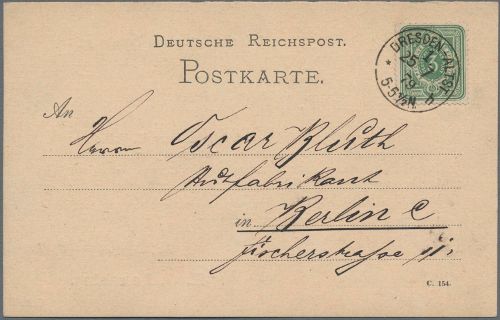 DEUTSCHE REICHSPOST.
POSTKARTE.
DRESDEN-ALTST.
25 2
79
5-5½N.
An
Herrn Oscar Kleith
Hutfabrikant
in Berlin C
Fischerstraße 11.
C. 154.